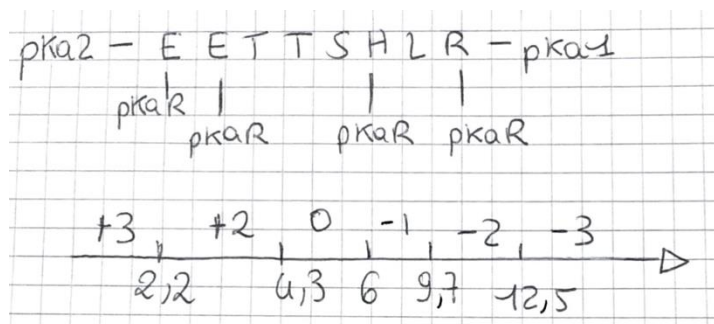 pKa2 - E E T T S H L R - pKa1
pKaR pKaR pKaR pKaR
+3 +2 0 -1 -2 -3
2,2 4,3 6 9,7 12,5